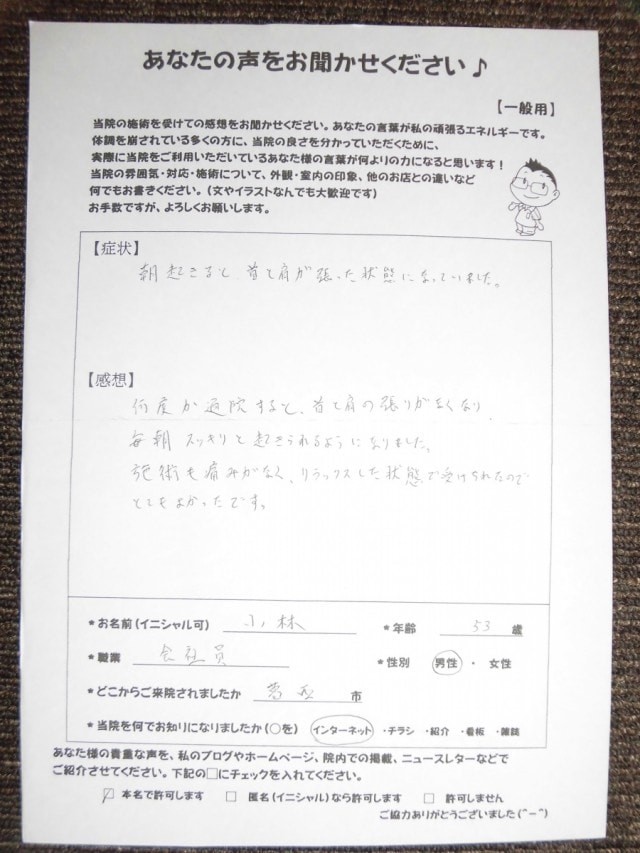 あなたの声をお聞かせください♪
【一般用】
当院の施術を受けての感想をお聞かせください。あなたの言葉が私の頑張るエネルギーです。
体調を崩されている多くの方に、当院の良さを分かっていただくために、
実際に当院をご利用いただいているあなた様の言葉が何よりの力になると思います！
当院の雰囲気・対応・施術について、外観・室内の印象、他のお店との違いなど
何でもお書きください。（文やイラストなんでも大歓迎です）
お手数ですが、よろしくお願いします。
【症状】
朝起きると首と肩が張った状態になっていました。
【感想】
何度か通院すると、首と肩の張りがなくなり、
毎朝スッキリと起きられるようになりました。
施術も痛みがなく、リラックスした状態で受けられたので
とてもよかったです。
*お名前（イニシャル可） 小林 *年齢 53 歳
*職業 会社員 *性別 男性 ・ 女性
*どこからご来院されましたか 市
*当院を何でお知りになりましたか（○を） インターネット ・チラシ ・紹介 ・看板 ・雑誌
あなた様の貴重な声を、私のブログやホームページ、院内での掲載、ニュースレターなどで
ご紹介させてください。下記の□にチェックを入れてください。
☑ 本名で許可します □ 匿名（イニシャル）なら許可します □ 許可しません
ご協力ありがとうございました（^－^）